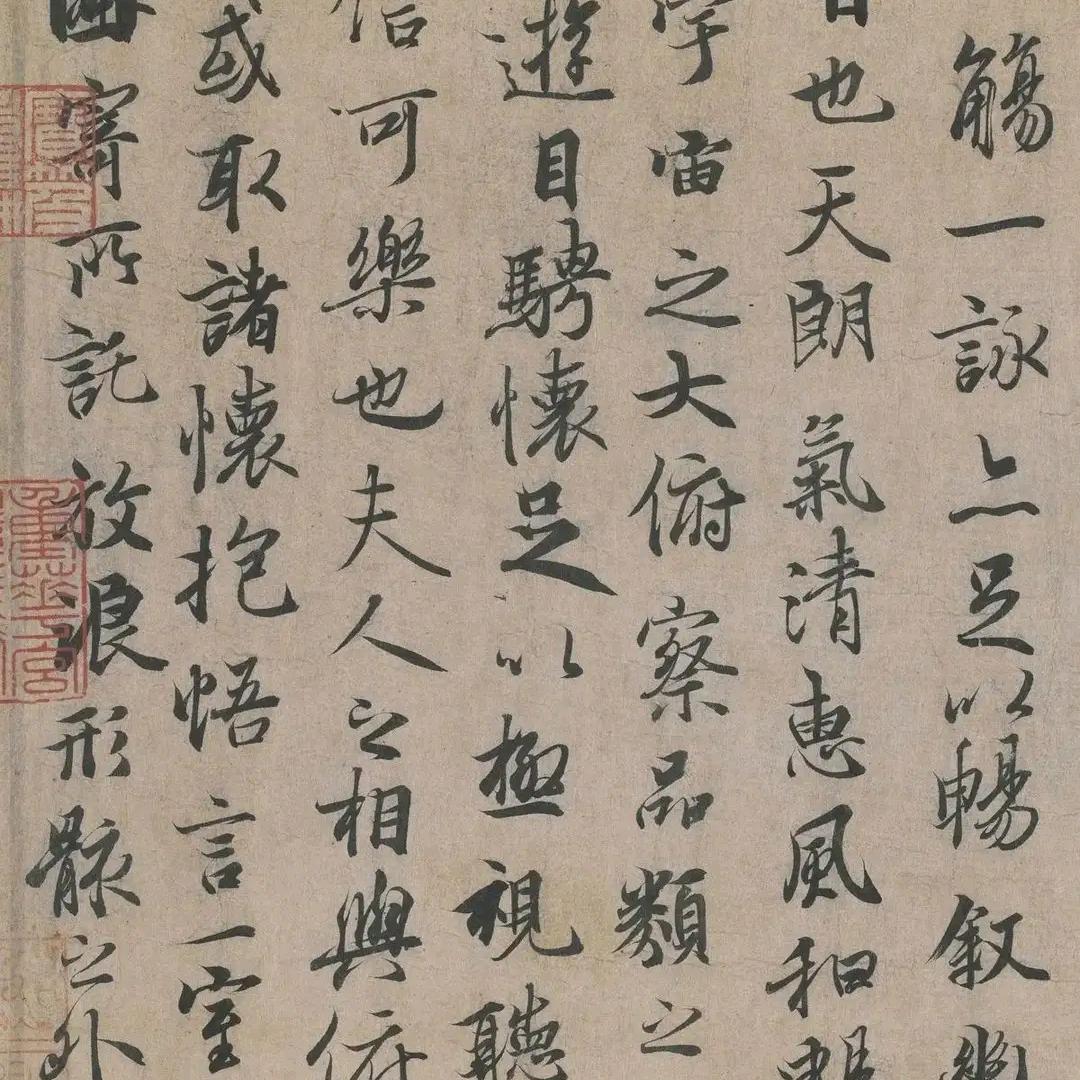 觴一詠亦足以暢叙幽
日也天朗氣清惠風和暢
宇宙之大俯察品類之
遊目騁懷足以極視聽
信可樂也夫人之相與俯
或取諸懷抱悟言一室
因寄所託放浪形骸之外